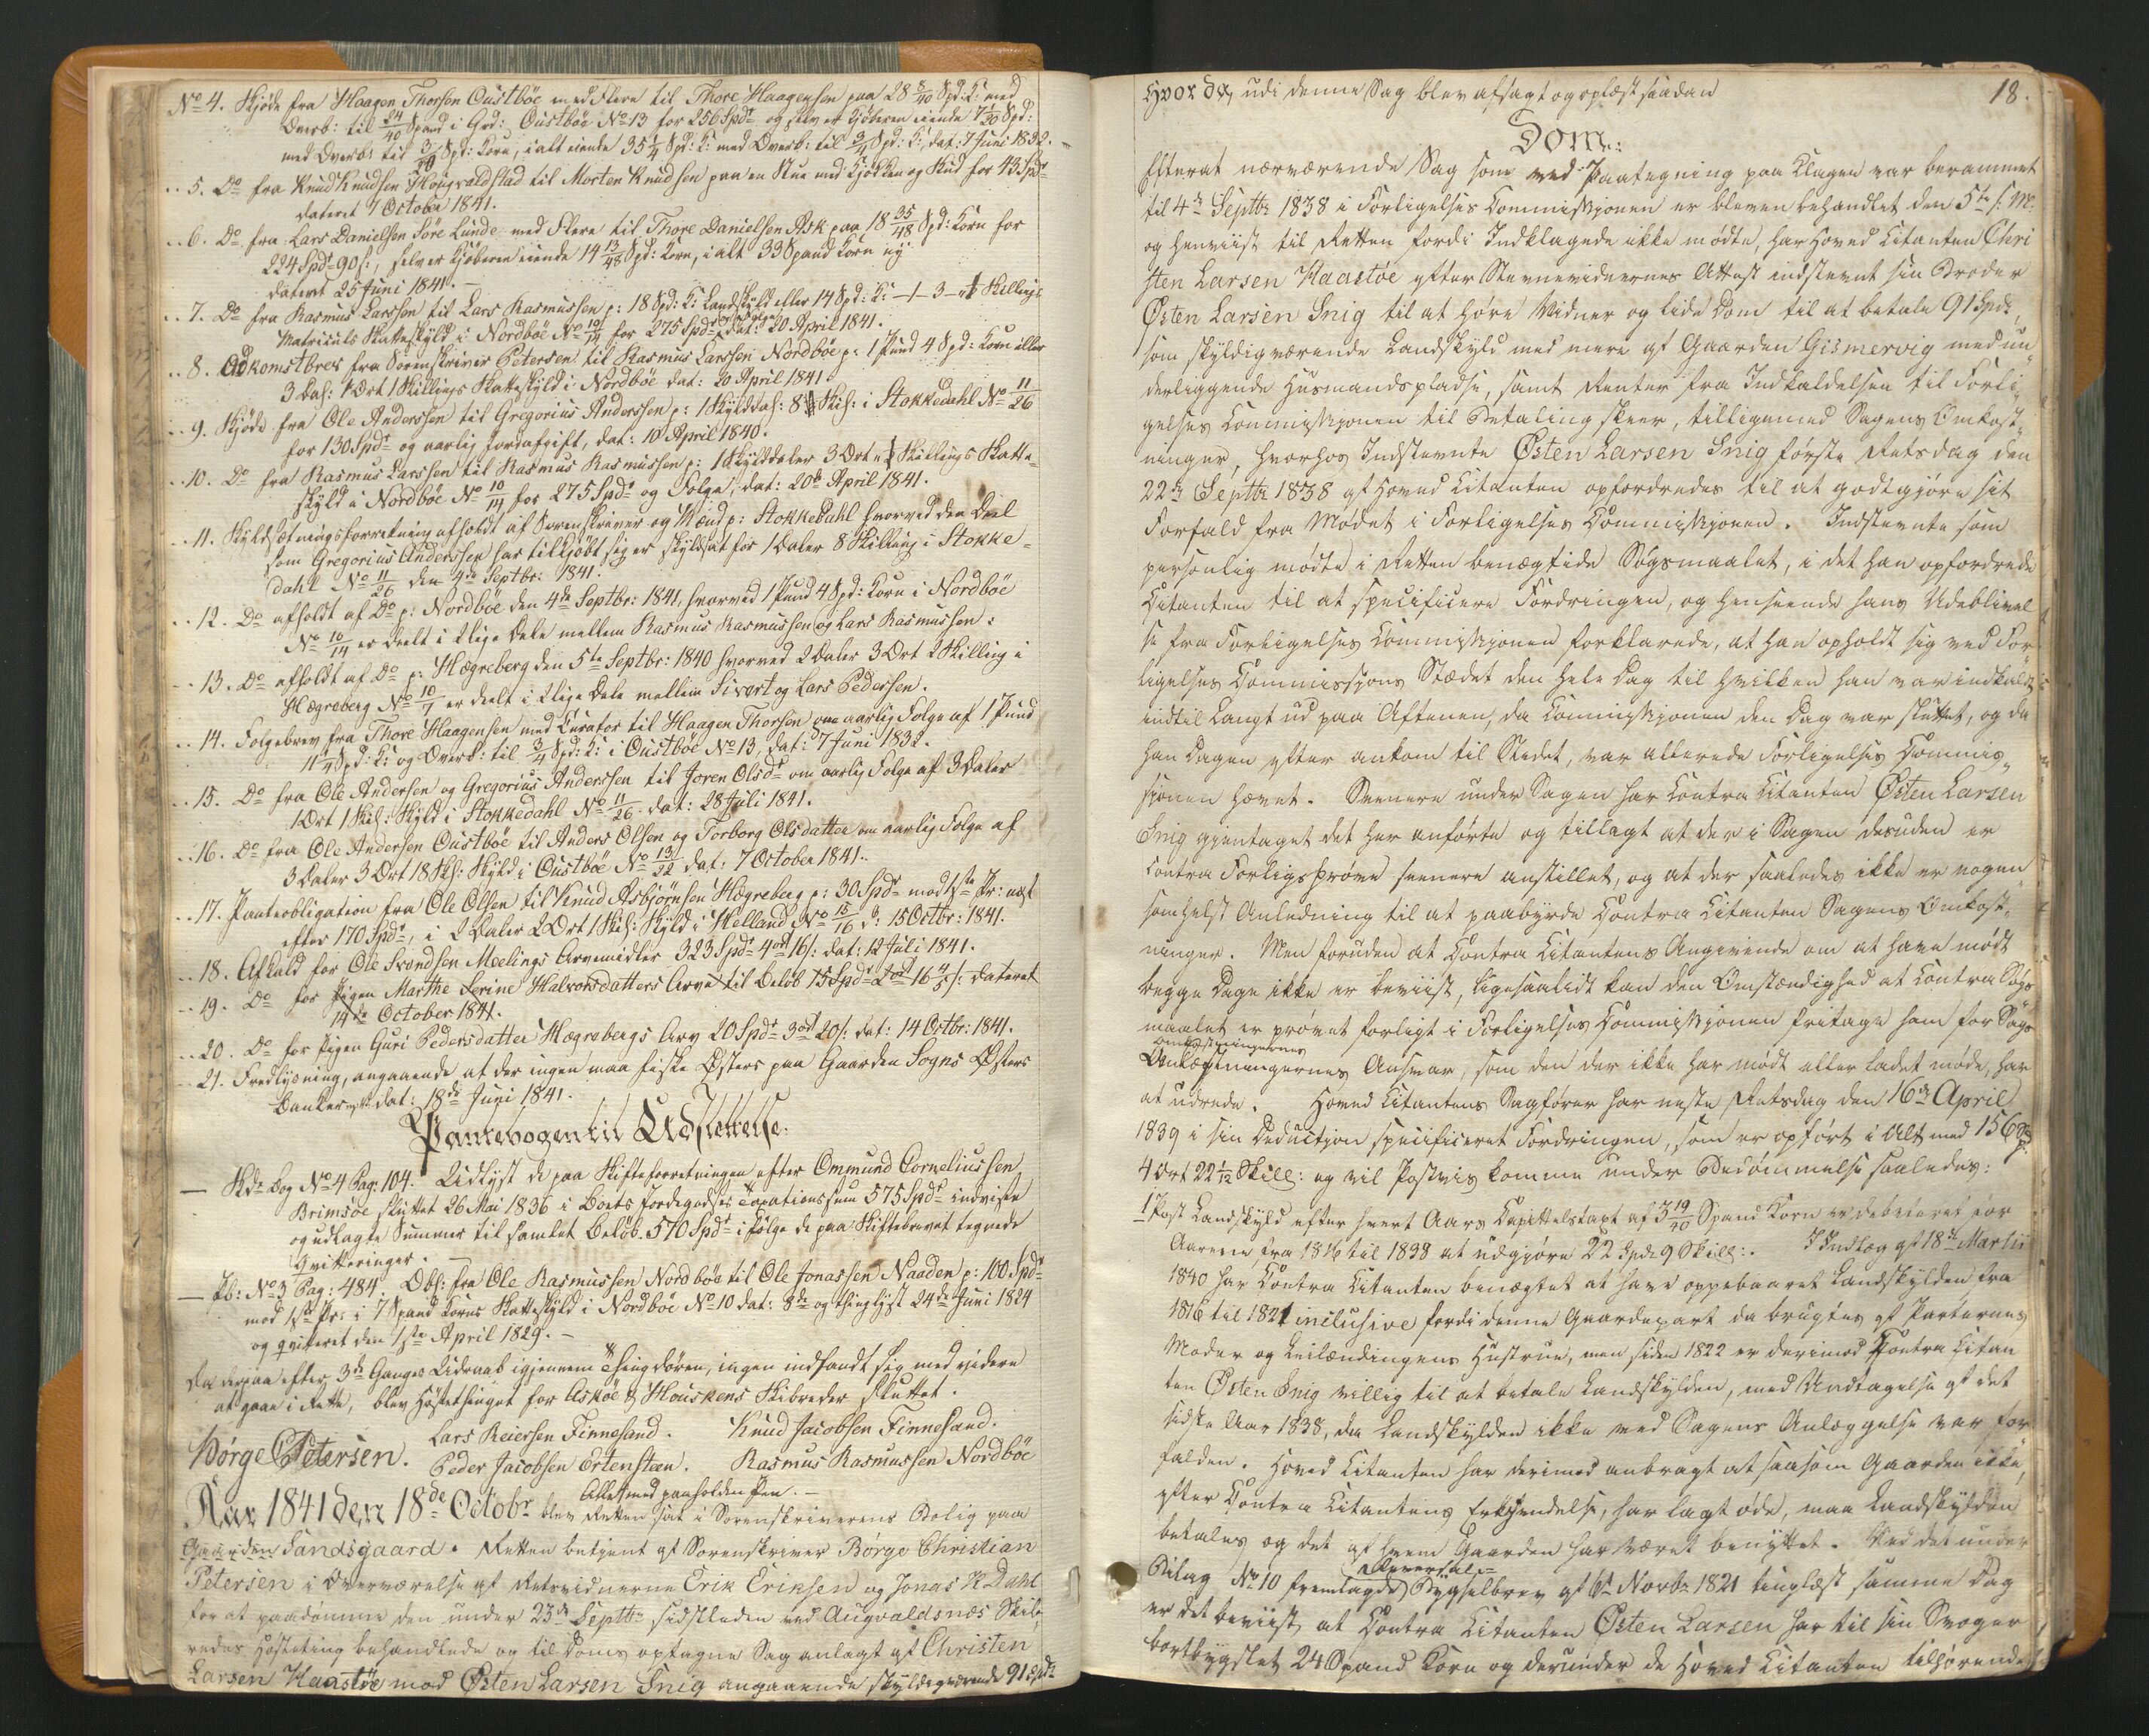 No 4. Skjöde fra Haagen Thorsen Oustböe med Flere til Thore Haagensen paa 28 8/40 Spd: K: med
Overb: til 24/40 Spand i Grd: Oustböe No 13 for 256 Spdr og selv er Kjöberen eiende 7 1/20 Spd:
med Overb: til 3/20 Spd: Korn, i alt eiende 35 1/4 Spd: K: med Overb: til 3/4 Spd: K:, dat: 7 Juni 1832.
5. Do fra Knud Knudsen Hougvaldstad til Morten Knudsen paa en Stue med Kjökken og Skud for 43 Spdr
dateret 7 October 1841.
6. Do fra Lars Danielsen Söre Lunde med Flere til Thore Danielsen Ask paa 18 35/48 Spd: Korn for
224 Spdr 90 s:, selv er Kjöberen eiende 14 13/48 Spd: Korn, i alt 33 Spand Korn
dateret 25 Juni 1841.
7. Do fra Rasmus Larssen til Lars Rasmussen p: 18 Spd: K: Landskyld eller 14 Spd: K: 1-3- Skillings
Matriculs Skatteskyld i Nordböe No 10/14 for 275 Spdr og Folge dat: 20 April 1841.
8. Adkomstbrev fra Sorenskriver Petersen til Rasmus Larssen Nordböe p: 1 Pund 4 Spd: Korn eller
3 Dal: 1 Ort 1 Skillings Skatteskyld i Nordböe dat: 20 April 1841.
9. Skjöde fra Ole Anderssen til Gregorius Anderssen p: 1 Skylddal: 8 Skil: i Stokkedahl No 11/26
for 130 Spdr og aarlig Jordafgift, dat: 10 April 1840.
10. Do fra Rasmus Larssen til Rasmus Rasmussen p: 1 Skylddaler 3 Ort Skillings Skatte-
skyld i Nordböe No 10/14 for 275 Spdr og Folge, dat: 20de April 1841.
11. Skyldsætningsforretning afholdt af Sorenskriver og Mænd p: Stokkedahl hvorved den Deel
som Gregorius Anderssen har tilkjöbt sig er skyldsat for 1 Daler 8 Skilling i Stokke-
dahl No 11/26 den 4de Septbr: 1841.
12. Do afholdt af Do p: Nordböe den 4de Septbr: 1841, hvorved 1 Pund 4 Spd: Korn i Nordböe
No 10/14 er deelt i 2 lige Dele mellem Rasmus Rasmussen og Lars Rasmussen.
13. Do afholdt af Do p: Hægreberg den 5te Septbr: 1840 hvorved 2 Daler 3 Ort 2 Skilling i
Hægreberg No 10/7 er deelt i 2 lige Dele mellem Sivert og Lars Pedersen.
14. Folgebrev fra Thore Haagensen med Curator til Haagen Thorsen om aarlig Folge af 1 Pund
11 1/4 Spd: K: og Overb: til 3/4 Spd: K: i Oustböe No 13, dat: 7 Juni 1832.
15. Do fra Ole Andersen og Gregorius Anderssen til Joren Olsdr om aarlig Folge af 3 Daler
1 Ort 1 Skil: Skyld i Stokkedahl No 11/26 dat: 28 Juli 1841.
16. Do fra Ole Andersen Oustböe til Anders Olsen og Torborg Olsdatter om aarlig Folge af
3 Daler 3 Ort 18 Sk: Skyld i Oustböe No 13/22 dat: 7 October 1841.
17. Panteobligation fra Ole Olsen til Knud Asbjörnsen Högreberg p: 30 Spdr mod 1ste Pr: næst
efter 170 Spdr, i 2 Daler 2 Ort 1 Skil: Skyld i Helland No 15/16 d: 15 Octbr: 1841.
18. Afkald for Ole Svendsen Meelings Arvemidler 323 Spdr 4 ort 16 s: dat: 12 Juli 1841.
19. Do for Pigen Marthe Serine Halvorsdatters Arv til Belöb 15 Spdr 2 ort 16 4/5 s: dateret
14de October 1841.
20. Do for Pigen Guri Pedersdatter Hægrebergs Arv 20 Spdr 3 ort 20 s: dat: 14 Octbr: 1841.
21. Fredlysning, angaaende at der ingen maa fiske Østers paa Gaarden Sogns Østers
Banker dat: 18de Juni 1841.
Pantebogen til Udslettelse.
Skde Bog No 4 Pag: 104. Udlyst de paa Skifteforretningen efter Ommund Corneliussen
Brimsöe sluttet 26 Mai 1836 i Boets Jordegodses Taxationssum 575 Spdr indviste
og udlagte Summer til samlet Belöb 570 Spdr ifölge de paa Skiftebrevet tegnede
Qvitteringer.
Pb: No 3 Pag: 484. Obl: fra Ole Rasmussen Nordböe til Ole Jonassen Naaden p: 100 Spdr
mod 1ste Pr: i 7 Spand Korns Skatteskyld i Nordböe No 10 dat: 8de og thinglyst 24de Juni 1824
og qvitteret den 1ste April 1829.
Da derpaa efter 3de Ganges Udraab igjennem Thingdören, ingen indfandt sig med videre
at gaae i Rette, blev Höstethinget for Asköe & Houskens Skibreder sluttet.
Börge C Petersen. Lars Reiersen Finnesand. Knud Jacobsen Finnesand.
Peder Jacobsen Ertensteen. Rasmus Rasmussen Nordböe
Alle med paaholden Pen.
Aar 1841 den 18de Octobr blev Retten sat i Sorenskriverens Bolig paa
Gaarden Sandsgaard. Retten betjent af Sorenskriver Börge Christian
Petersen i Overværelse af Retsvidnerne Erik Eriksen og Jonas K Dahl
for at paadömme den under 23de Septbr sidstleden ved Augvaldsnæs Skib-
redes Hösteting behandlede og til Doms optagne Sag anlagt af Christen
Larsen Haastöe mod Østen Larsen Snig angaaende skyldigværende 91 Spdr
18.
Hvorda udi denne Sag blev afsagt og oplæst saadan
Dom:
Efterat nærværende Sag som ved Paategning paa Klagen var berammet
til 4de Septbr 1838 i Forligelses Commissionen er bleven behandlet den 5te s: M.
og henviist til Retten fordi Indklagede ikke mödte, har Hoved Citanten Chri
sten Larsen Haastöe efter Stevnevidnernes Attest indstevnt sin Broder
Østen Larsen Snig til at höre Vidner og lide Dom til at betale 91 Spdr,
som skyldigværende Landskyld med mere af Gaarden Gismervig med un
derliggende Husmandspladse, samt Renter fra Indkaldelsen til Forli-
gelses Commissionen til Betaling skeer, tilligemed Sagens Omkost-
ninger, hvorhos Indstevnte Østen Larsen Snig förste Retsdag den
22de Septbr 1838 af Hoved Citanten opfordredes til at godtgjöre sit
Forfald fra Mödet i Forligelses Commissionen. Indstevnte som
personlig mödte i Retten benægtede Sögsmaalet, i det han opfordrede
Citanten til at specificere Fordringen, og henseende hans Udeblivel
se fra Forligelses Commissionen forklarede, at han opholdt sig ved For
ligelses Commissions Stædet den hele Dag til hvilken han var indkaldt
indtil langt ud paa Aftenen, da Commissionen den Dag var sluttet, og da
han Dagen efter ankom til Stedet, var allerede Forligelses Commis-
sionen hævet. Senere under Sagen har Contra Citanten Østen Larsen
Snig gjentaget det her anförte og tillagt at der i Sagen desuden er
Contra Forligspröve senere anstillet, og at der saaledes ikke er nogen
somhelst Anledning til at paabyrde Contra Citanten Sagens Omkost-
ninger. Men foruden at Contra Citantens Angivende om at have mödt
begge Dage ikke er beviist, ligesaalidt kan den Omstændighed at Contra Sögs
maalet er prövet forligt i Forligelses Commissionen fritage ham for Sags
omkostningernes
Ansvar, som den der ikke har mödt eller ladet möde, har
at udrede. Hoved Citantens Sagförer har neste Retsdag den 16de April
1839 i sin Deduction specificeret Fordringen, som er opfört i Alt med 156 Spd:
4 Ort 22 1/12 Skill: og vil Postvis komme under Bedömmelse saaledes:
1 Post Landskyld efter hvert Aars Kapittelstaxt af 3 19/40 Spand Korn er debiteret for
Aarene fra 1816 til 1838 at udgjöre 22 Spdr 9 Skill:. I Indlæg af 18de Martii
1840 har Contra Citanten benægtet at have oppebaaret Landskylden fra
1816 til 1821 inclusive fordi denne Gaardepart da brugtes af Parternes
Moder og Leilændingens Hustrue, men siden 1822 er derimod Contra Citan
ten Østen Snig villig til at betale Landskylden, med Undtagelse af det
sidste Aar 1838, da Landskylden ikke ved Sagens Anlæggelse var for
falden. Hoved Citanten har derimod anbragt at saasom Gaarden ikke,
efter Contra Citantens Erkjendelse, har lagt öde, maa Landskylden
betales og det af hvem Gaarden har været benyttet. Ved det under
Reversal-
Bilag No 10 fremlagde Bygselbrev af 6te Novbr 1821 tinglæst samme Dag
er det beviist, at Contra Citanten Østen Larsen har til sin Svoger
bortbygslet 24 Spand Korn og derunder de Hoved Citanten tilhörende